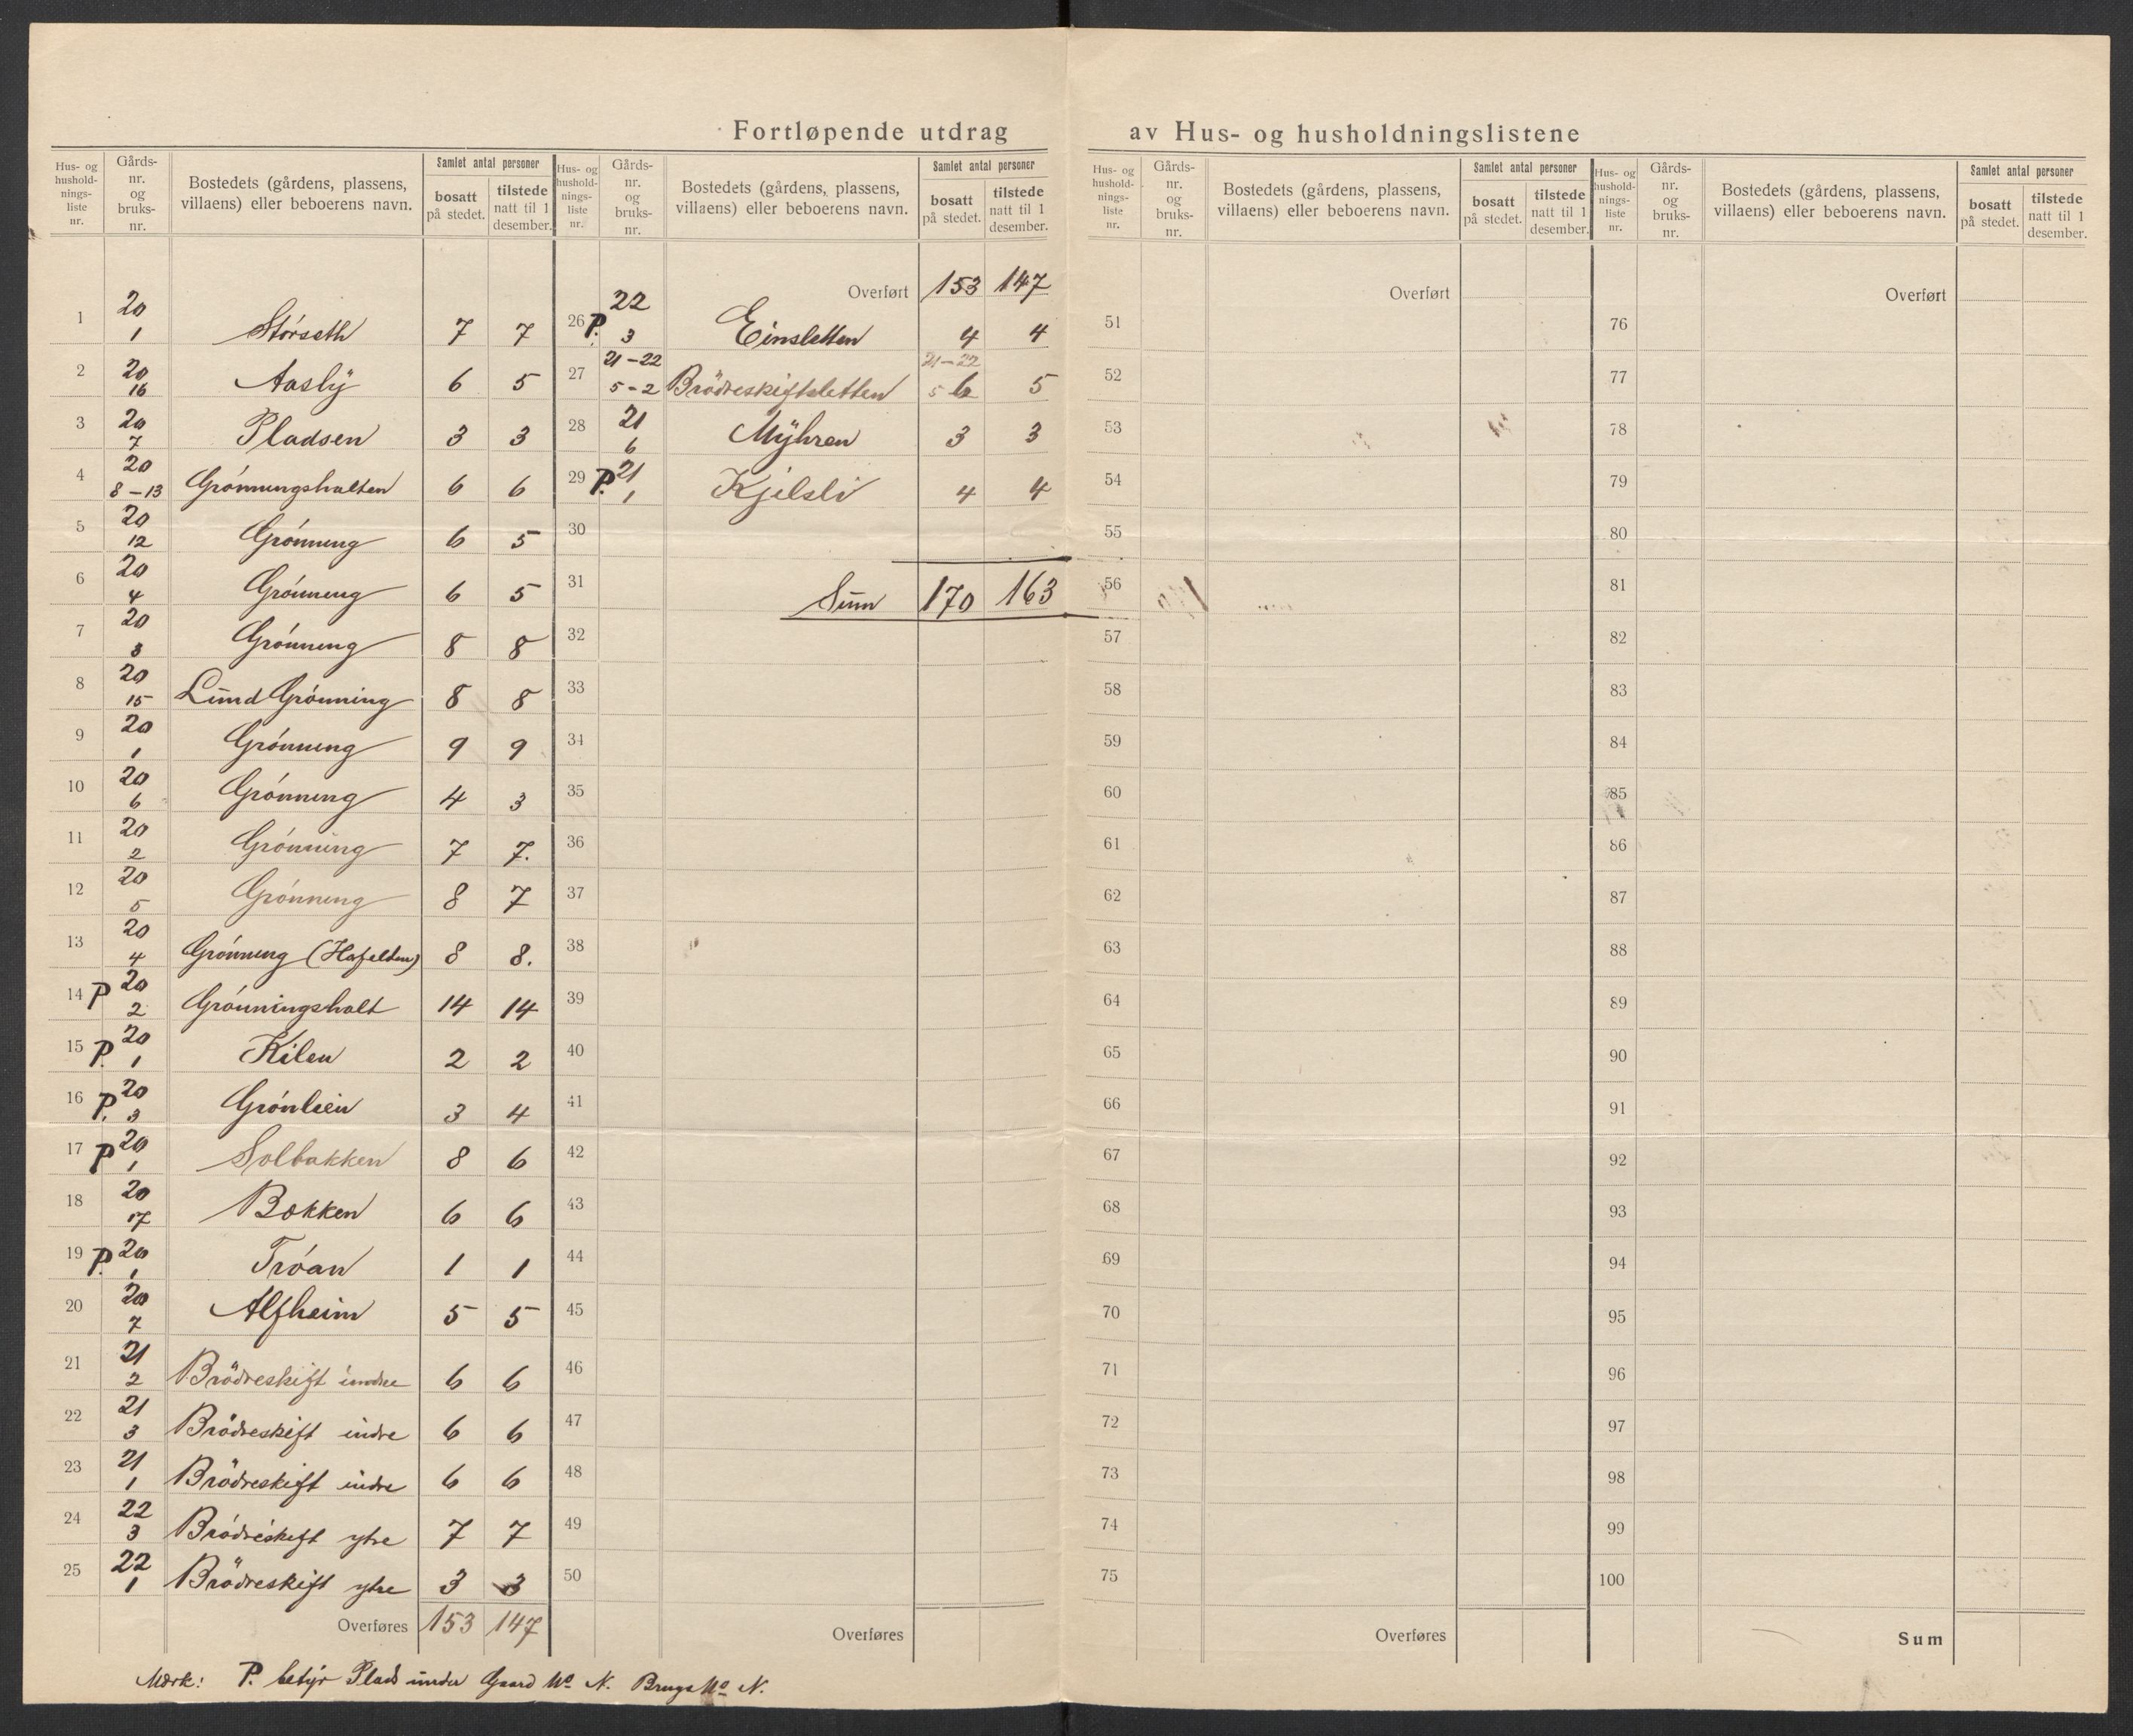 Fortløpende utdrag av Hus- og husholdningslistene
Hus- og hushold-nings-liste nr. | Gårds-nr. og bruks-nr. | Bostedets (gårdens, plassens, villaens) eller beboerens navn. | Samlet antal personer | bosatt på stedet. | tilstede natt til 1 desember.
1 | 20 1 | Störseth | 7 | 7
2 | 20 16 | Aaslÿ | 6 | 5
3 | 20 7 | Pladsen | 3 | 3
4 | 20 8-13 | Grönnungshalten | 6 | 6
5 | 20 12 | Grónnung | 6 | 5
6 | 20 4 | Grónnung | 6 | 5
7 | 20 3 | Grónnung | 8 | 8
8 | 20 15 | Lund Grónning | 8 | 8
9 | 20 1 | Grónnung | 9 | 9
10 | 20 6 | Grónnung | 4 | 3
11 | 20 2 | Grónning | 7 | 7.
12 | 20 5 | Grónnung | 8 | 7
13 | 20 4 | Grónnung (Hafelten) | 8 | 8.
14 | P 20 2 | Grónningshalt | 14 | 14
15 | P. 20 1 | Kilen | 2 | 2
16 | P. 20 3 | Grónlein | 3 | 4
17 | P 20 1 | Solbakken | 8 | 6
18 | 20 17 | Bakken | 6 | 6
19 | P. 20 1 | Tróan | 1 | 1
20 | 20 7 | Alfheim | 5 | 5
21 | 21 2 | Brödreskift indre | 6 | 6
22 | 21 3 | Brödreskift indre | 6 | 6
23 | 21 1 | Brödreskift indre | 6 | 6
24 | 22 3 | Bródreskift ytre | 7 | 7
25 | 22 1 | Brödreskift ytre | 3 | 3
Overføres | 153 | 147
Mærk: P. betyr Plads under Gaard No N. Brugs No N.
Hus- og hushold-nings-liste nr. | Gårds-nr. og bruks-nr. | Bostedets (gårdens, plassens, villaens) eller beboerens navn. | Samlet antal personer | bosatt på stedet. | tilstede natt til 1 desember.
Overført | 153 | 147
26 | P. 22 3 | Einsletten | 4 | 4
27 | 21-22 5-2 | Brödreskiftsletten | 21-22 5 6 | 5
28 | 21 6 | Mÿhren | 3 | 3
29 | P. 21 1 | Kjelsli | 4 | 4
30
31 | Sum | 170 | 163
32
33
34
35
36
37
38
39
40
41
42
43
44
45
46
47
48
49
50
Overføres
Hus- og hushold-nings-liste nr. | Gårds-nr. og bruks-nr. | Bostedets (gårdens, plassens, villaens) eller beboerens navn. | Samlet antal personer | bosatt på stedet. | tilstede natt til 1 desember.
Overført
51
52
53
54
55
56
57
58
59
60
61
62
63
64
65
66
67
68
69
70
71
72
73
74
75
Overføres
Hus- og hushold-nings-liste nr. | Gårds-nr. og bruks-nr. | Bostedets (gårdens, plassens, villaens) eller beboerens navn. | Samlet antal personer | bosatt på stedet. | tilstede natt til 1 desember.
Overført
76
77
78
79
80
81
82
83
84
85
86
87
88
89
90
91
92
93
94
95
96
97
98
99
100
Sum